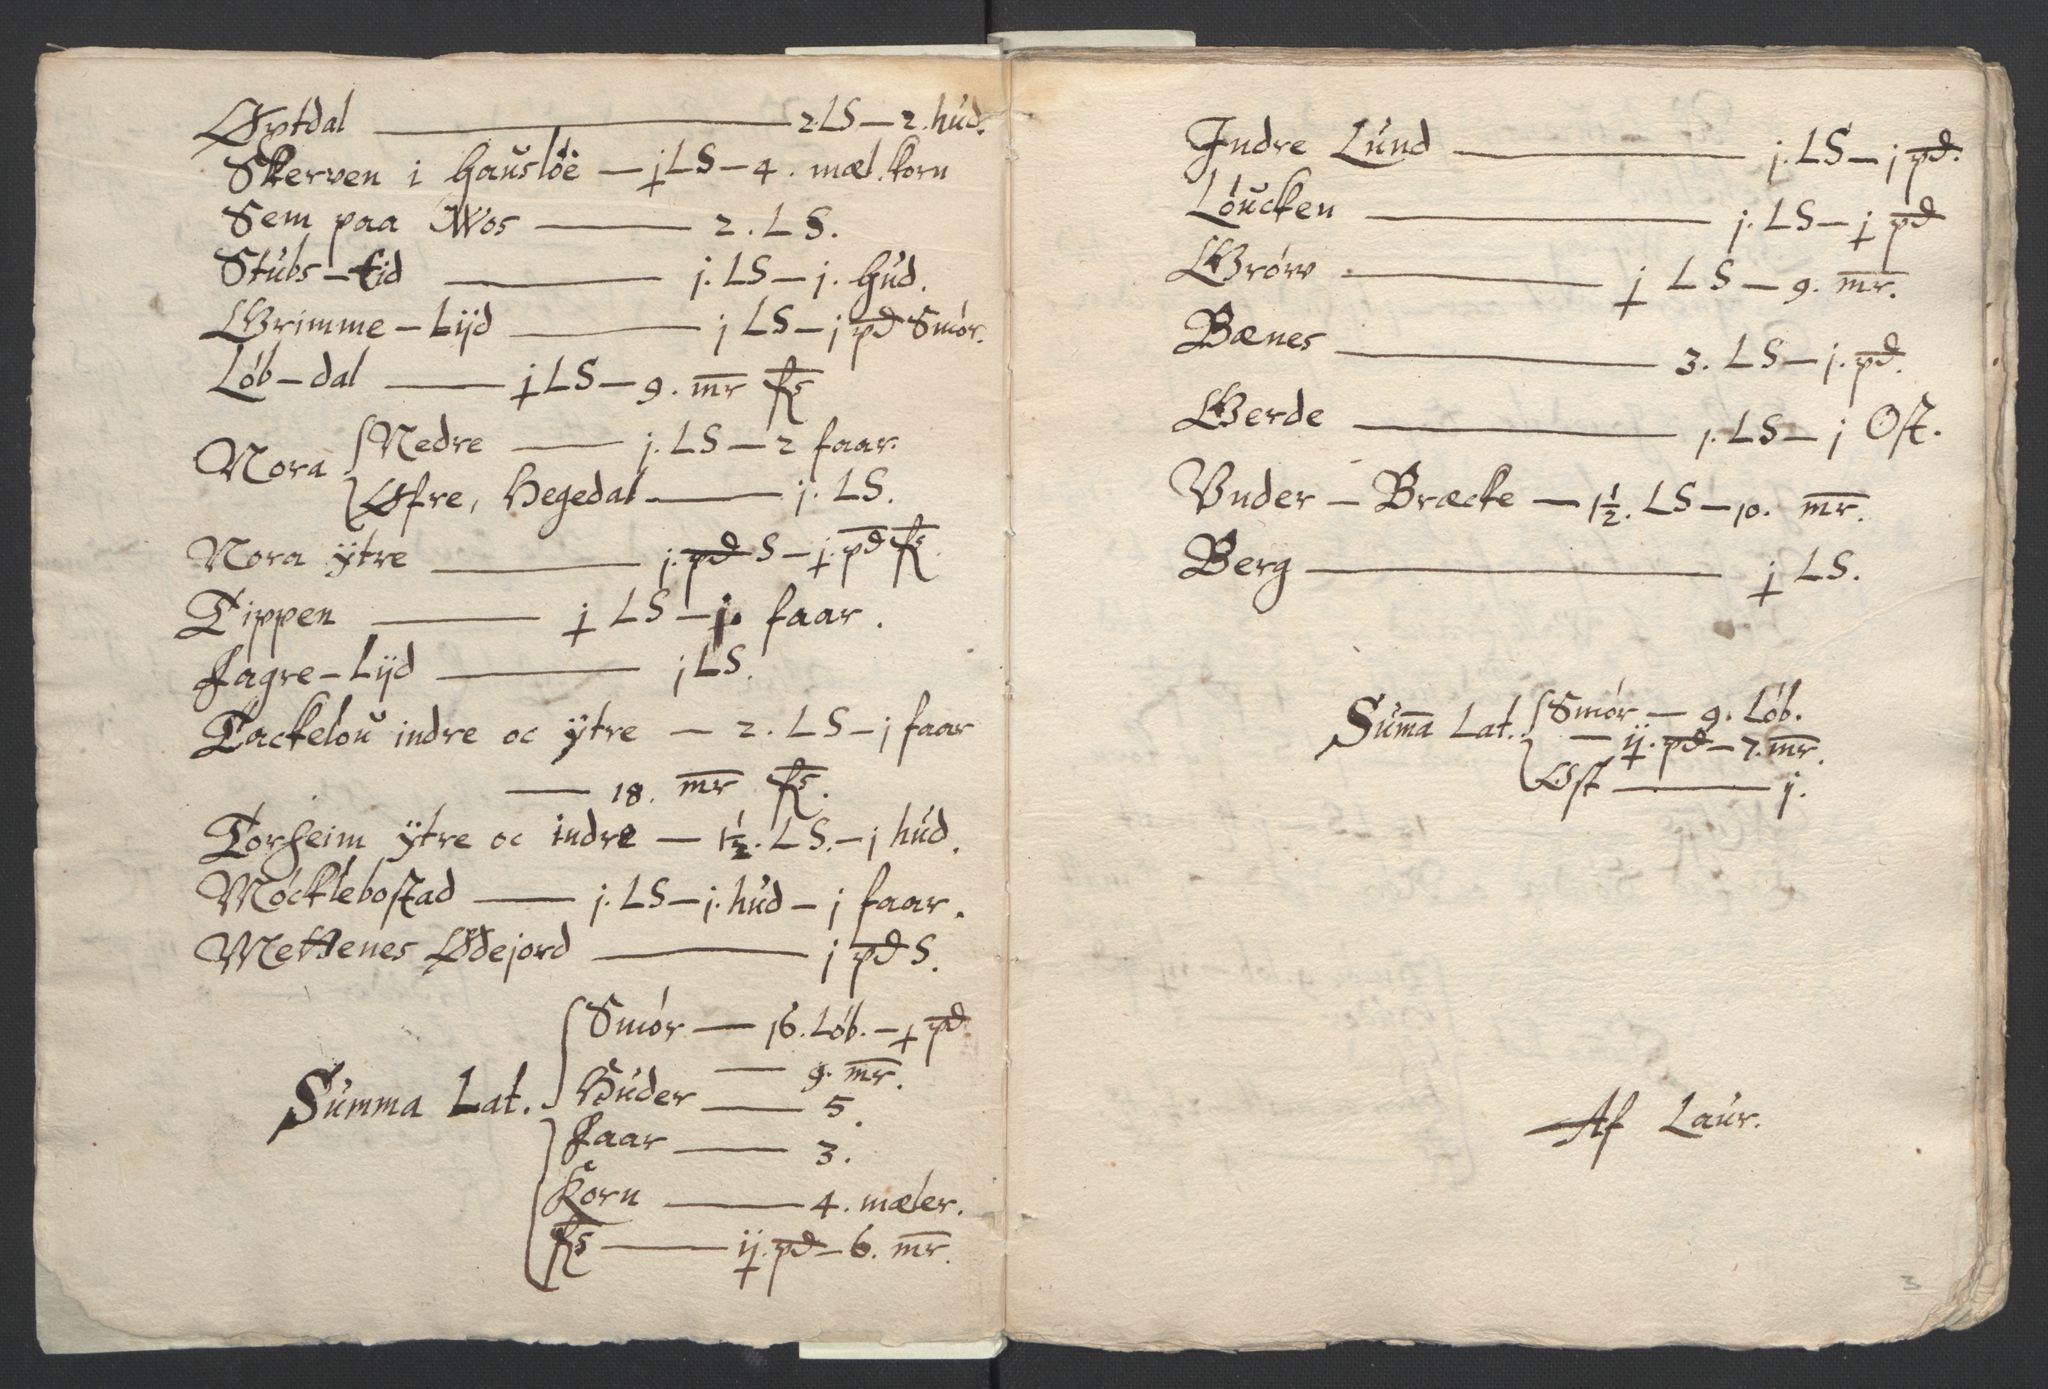 Øptdal — 2 LS — 2. hud.
Skerven i Hausløe — ɉ LS — 4. mæl. korn
Sem paa Wos — 2. LS.
Stubs-Eid — j. LS — j. Hud.
Grimme-Lijd — j LS — j pd Smór.
Lób-dal — ɉ LS — 9. mr
Nora { Nedre — j. LS — 2 faar.
Øfre, Hegedal — j. LS.
Nora ÿtre — j. pd S — ɉ. pd
Tippen — ɉ LS — j. faar.
Fagre-Lijd — j LS.
Tackelou indre oc ÿtre — 2. LS — j faar
— 18. mr
Torheim ÿtre oc indre — 1½. LS. — j hud.
Mócklebostad — j. LS — j. hud — j faar.
Mettenes Ødejord — j pd S.
Summa Lat. { Smór — 16. Lób. — ɉ pd
— 9. mr.
Huder — 5.
Faar — 3.
Korn — 4. mæler.
— iɉ. pd — 6. mr.
Indre Lund — j. LS — j pd.
Lóucken — j. LS — ɉ pd
Grów — ɉ LS — 9. mr.
Bænes — 3. LS — j. pd.
Gerde — j. LS — j Ost.
Vnder-Bræcke — 1½. LS — 10. mr.
Berg — ɉ LS.
Sum̄a Lat. { Smór — 9. Lób.
— iɉ. pd — 7. mr.
Ost — j.
Af Laur.
3